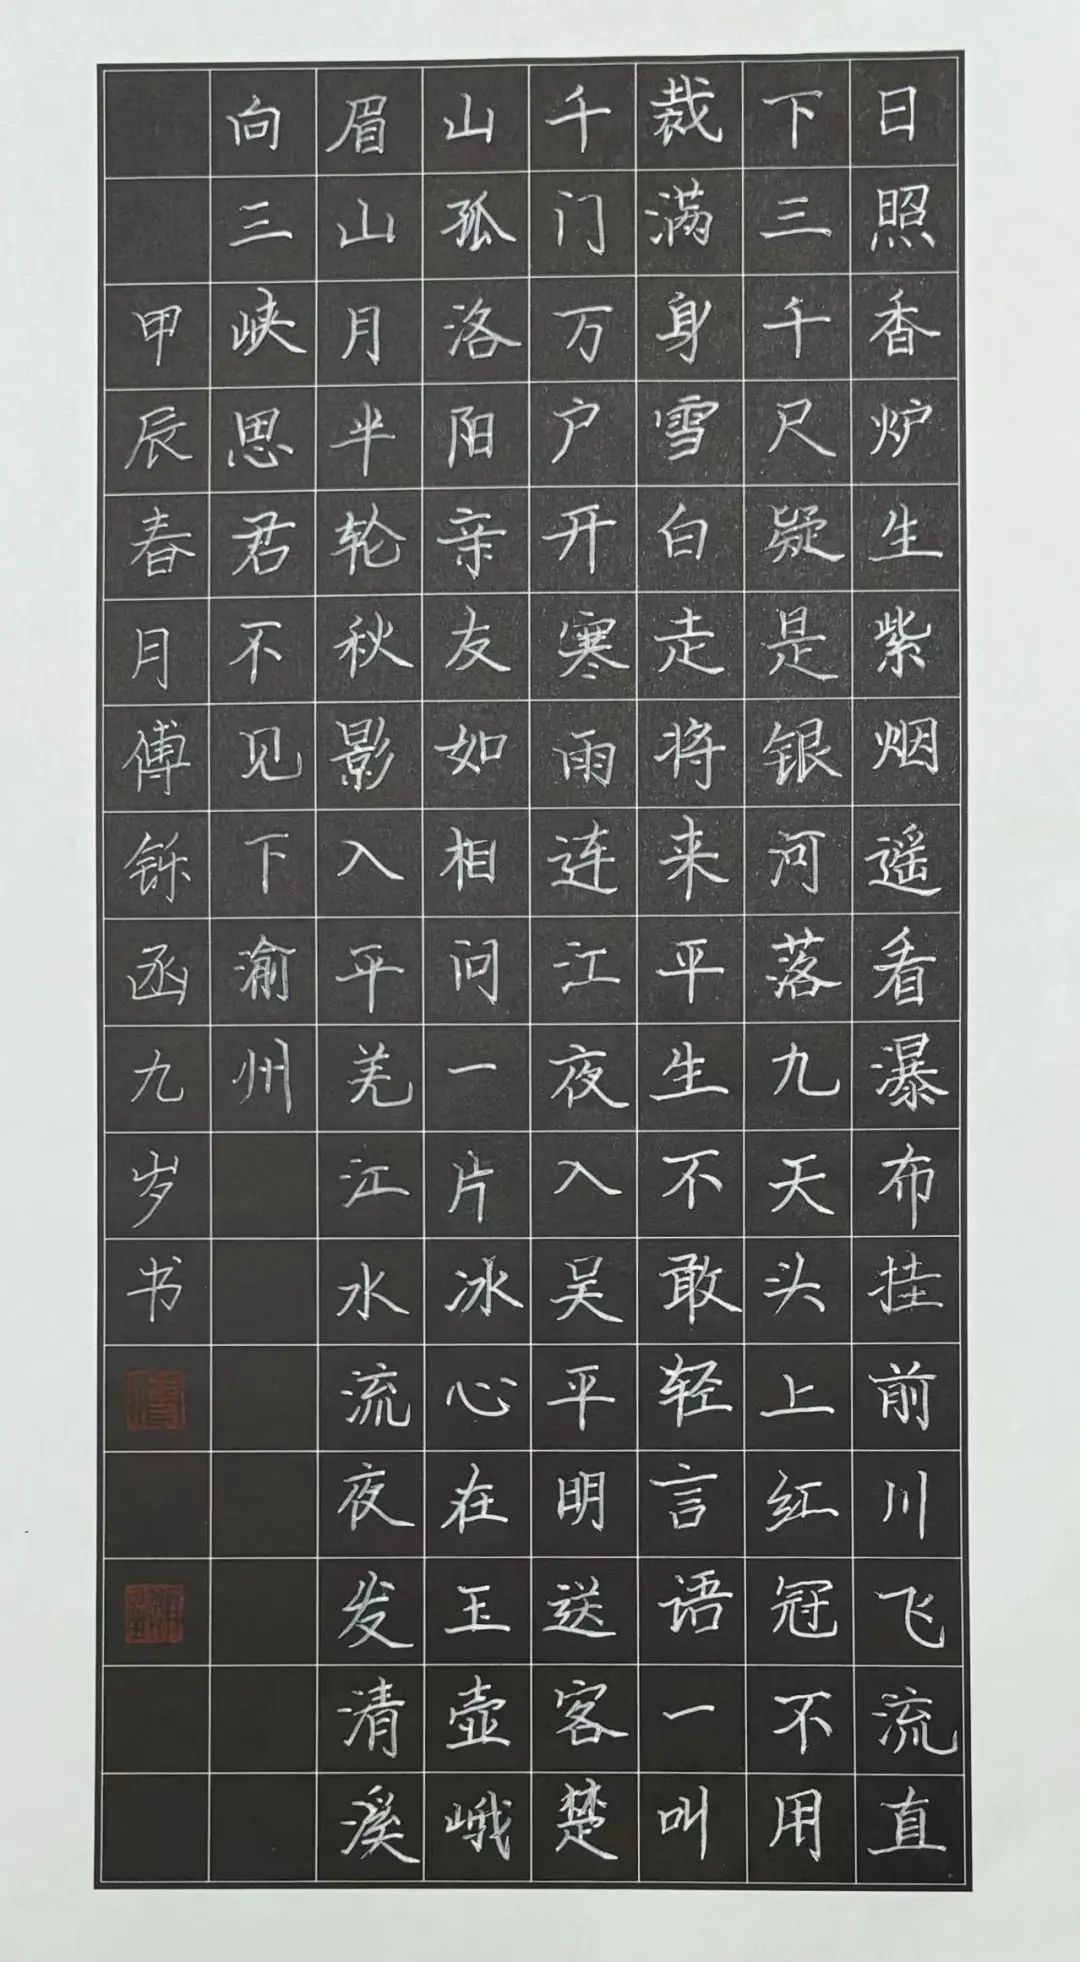 日照香炉生紫烟遥看瀑布挂前川飞流直
下三千尺疑是银河落九天头上红冠不用
裁满身雪白走将来平生不敢轻言语一叫
千门万户开寒雨连江夜入吴平明送客楚
山孤洛阳亲友如相问一片冰心在玉壶峨
眉山月半轮秋影入平羌江水流夜发清溪
向三峡思君不见下渝州
甲辰春月傅铄函九岁书